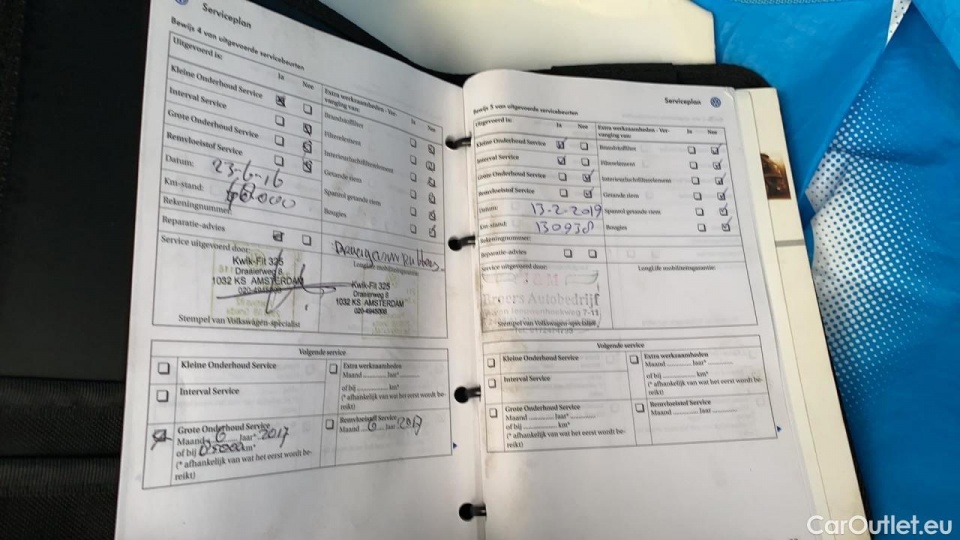 Serviceplan
Bewijs 4 van uitgevoerde servicebeurten
Uitgevoerd is:
Ja Nee
Kleine Onderhoud Service
Interval Service
Grote Onderhoud Service
Remvloeistof Service
Datum: 23-6-16
Km-stand:
Rekeningnummer:
Reparatie-advies
Extra werkzaamheden - Ver-
vanging van:
Ja Nee
Brandstoffilter
Filterelement
Interieurluchtfilterelement
Getande riem
Spanrol getande riem
Bougies
Service uitgevoerd door:
Kwik-Fit 325
Draaierweg 8
1032 KS AMSTERDAM
020-4945008
Stempel van Volkswagen-specialist
LongLife mobiliteitsgarantie:
Kwik-Fit 325
Draaierweg 8
1032 KS AMSTERDAM
020-4945008
Volgende service
Kleine Onderhoud Service
Interval Service
Grote Onderhoud Service
Maand 6 Jaar* 2017
of bij km*
(* afhankelijk van wat het eerst wordt be-
reikt)
Extra werkzaamheden
Maand Jaar*
of bij km*
(* afhankelijk van wat het eerst wordt be-
reikt)
Remvloeistof Service
Maand 6 Jaar 2017
Serviceplan
Bewijs 5 van uitgevoerde servicebeurten
Uitgevoerd is:
Ja Nee
Kleine Onderhoud Service
Interval Service
Grote Onderhoud Service
Remvloeistof Service
Datum: 13-2-2019
Km-stand: 130938
Rekeningnummer:
Reparatie-advies
Extra werkzaamheden - Ver-
vanging van:
Ja Nee
Brandstoffilter
Filterelement
Interieurluchtfilterelement
Getande riem
Spanrol getande riem
Bougies
Service uitgevoerd door:
Broers Autobedrijf
Stempel van Volkswagen-specialist
LongLife mobiliteitsgarantie:
Volgende service
Kleine Onderhoud Service
Interval Service
Grote Onderhoud Service
Maand Jaar*
of bij km*
(* afhankelijk van wat het eerst wordt be-
reikt)
Extra werkzaamheden
Maand Jaar*
of bij km*
(* afhankelijk van wat het eerst wordt be-
reikt)
Remvloeistof Service
Maand Jaar
CarOutlet.eu